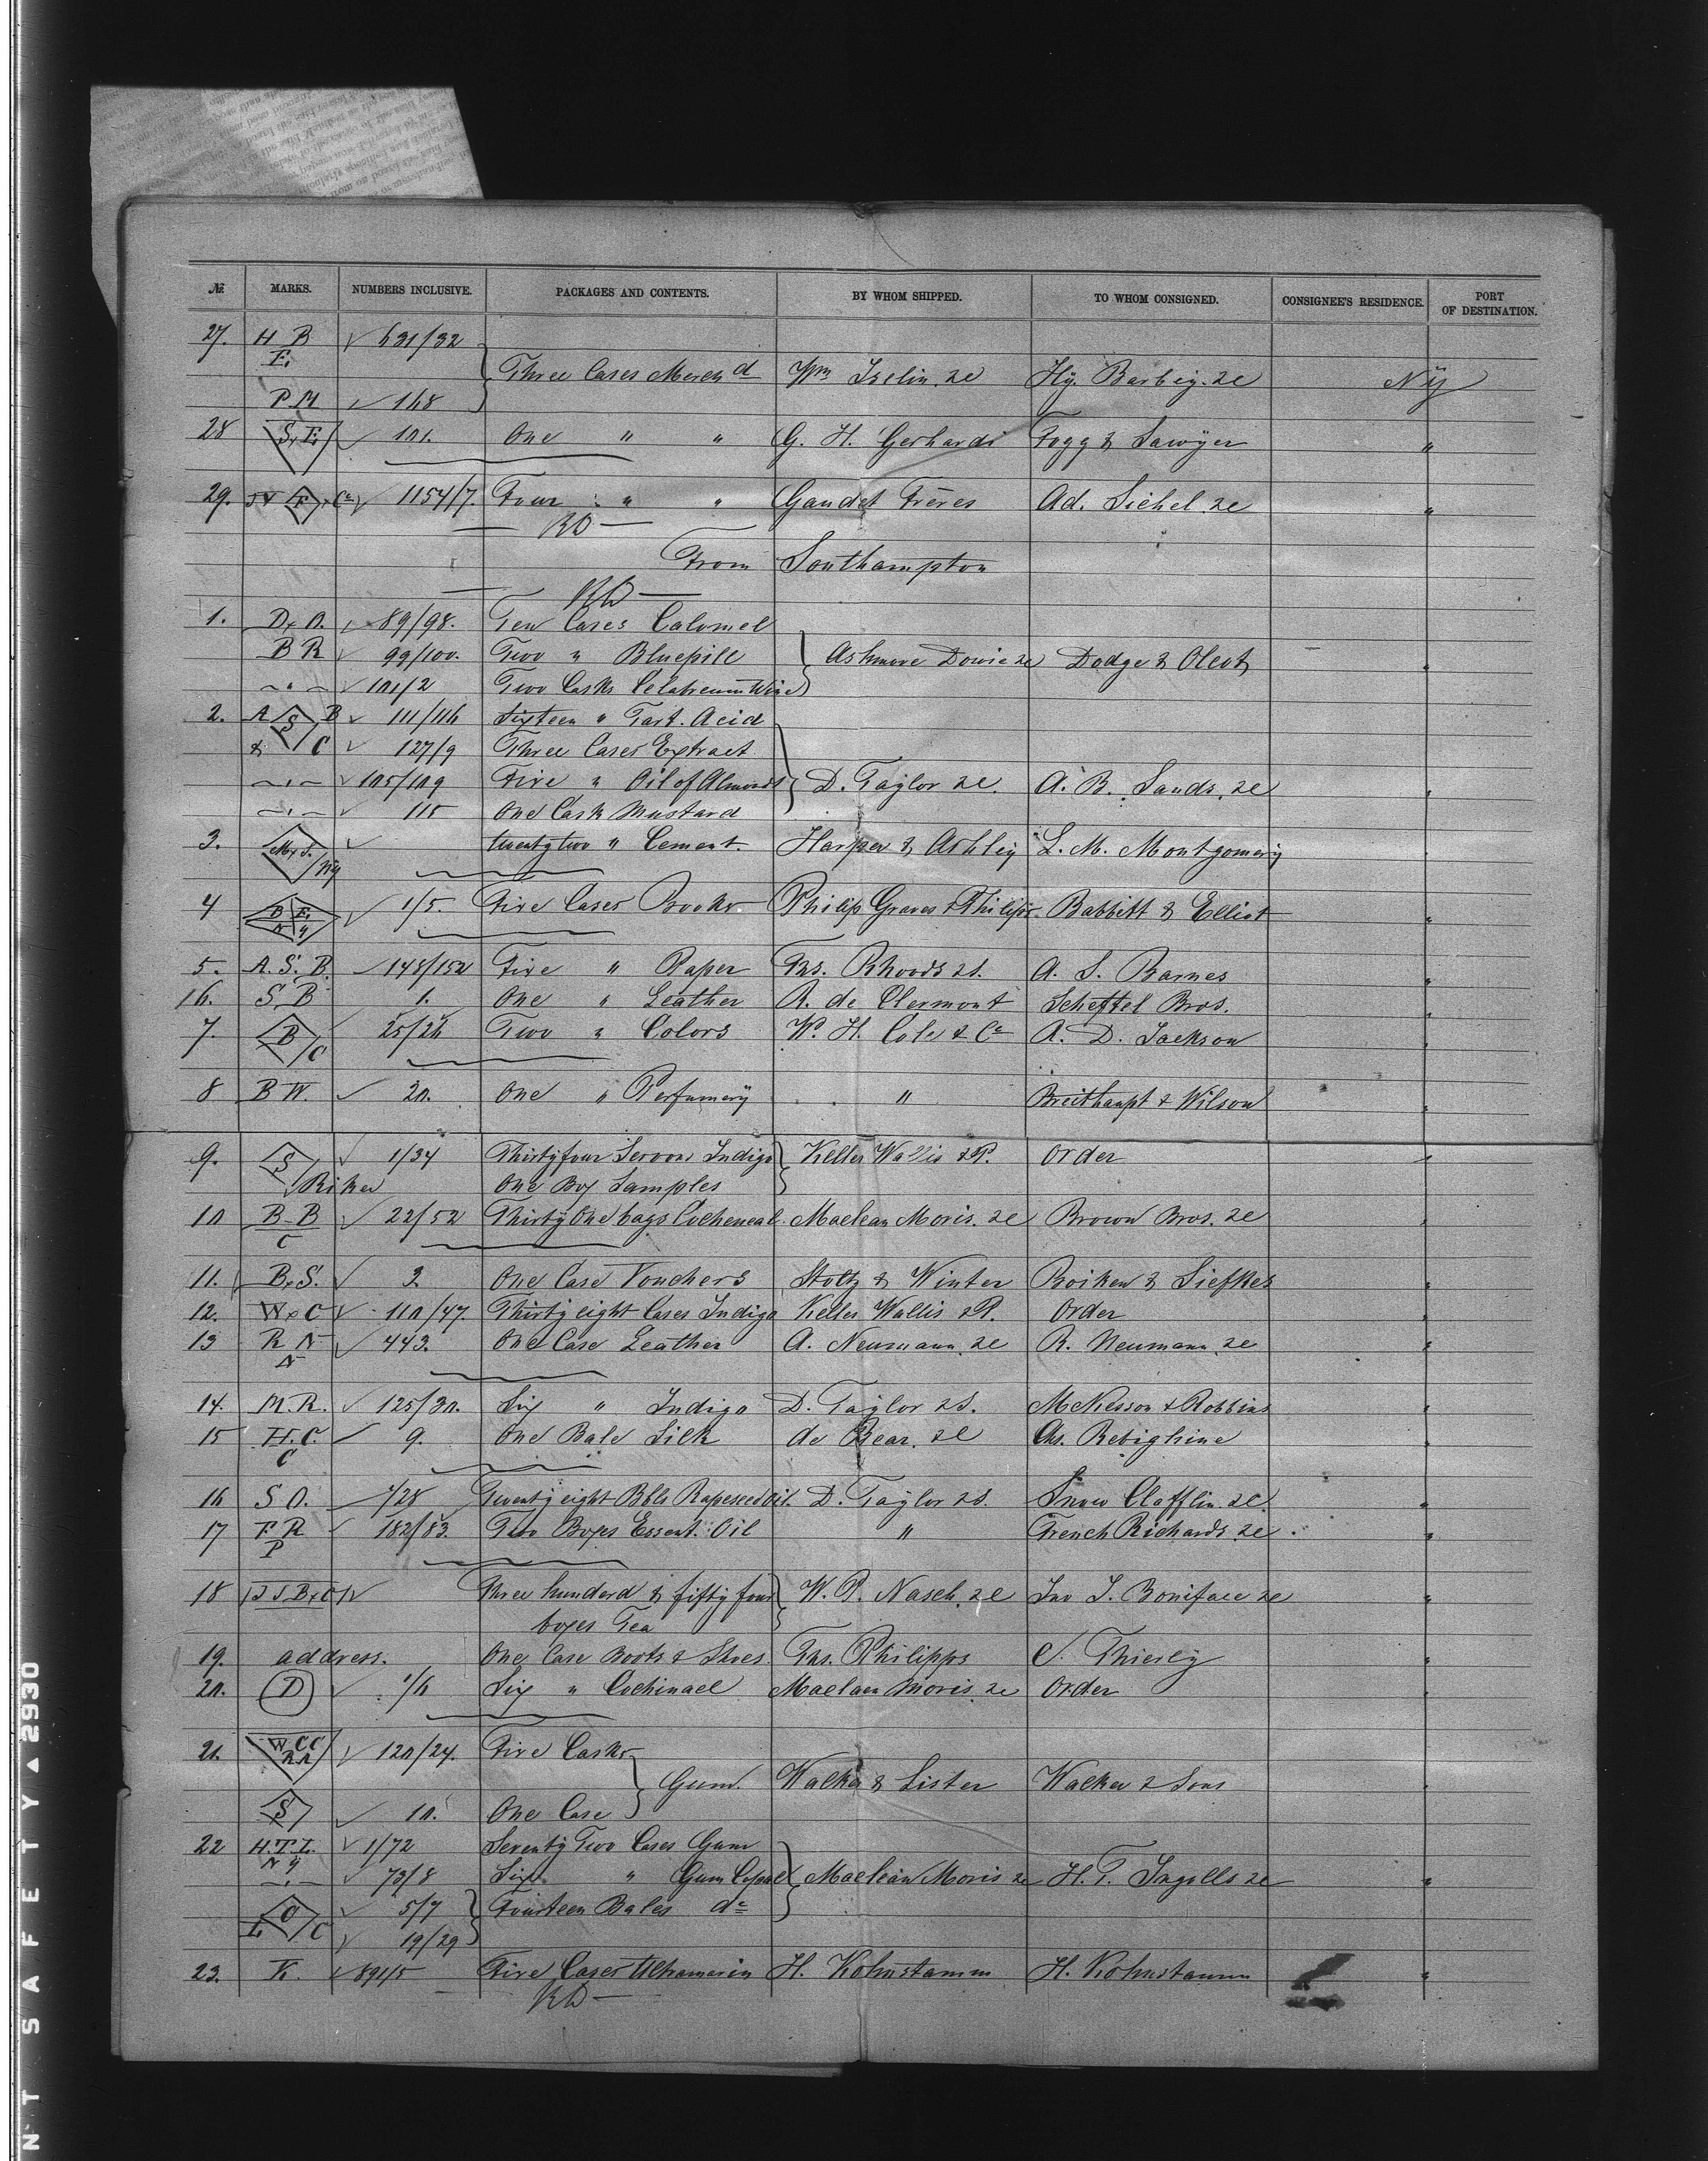 № MARKS. NUMBERS INCLUSIVE. PACKAGES AND CONTENTS. BY WHOM SHIPPED. TO WHOM CONSIGNED. CONSIGNEE'S RESIDENCE. PORT OF DESTINATION.
27. H B 631/32
E.
Three Cases Merch d Wm Iselin Hy. Barbey Ny
P M 168
28 S & E 101. One " " G. H. Gerhardi Fogg & Sawyer "
29. F Co 1154/7. Four " " Gaudet Frères Ad. Sichel "
From Southampton
1. D & O. 89/98. Ten Cases Calomel
B R 99/100. Two " Bluepill Ashmore Dowie Dodge & Olcott "
" 101/2 Two Casks
2. A S B 111/116 Sixteen " Tart. Acid
& C 127/9 Three Cases Extract
" 105/109 Five " Oil of Almonds D. Taylor A. B. Sands "
" 115 One Cask Mustard
3. Ny twenty two " Cement. Harper & Ashley L. M. Montgomery "
4 B E N Y 1/5. Five Cases Books. Philip Graves & Philips Babbitt & Elliot "
5. A. S. B. 148/152 Five " Paper Ths. Rhoods A. S. Barnes "
6. S. B 1. One " Leather R. de Clermont Scheftel Bros. "
7. B C 25/26 Two " Colors W. H. Cole & Co A. D. Jackson "
8 B W. 20. One " Perfumery " Breithaupt & Wilson "
9. S 1/34 Thirtyfour Seroon Indigo Keller Wallis & P. Order "
Riker One Box Samples
10 B B 22/52 Thirty One bags Cocheneal Maclean Moris. Brown Bros. "
C
11. B & S. 3. One Case Vouchers Stoltz & Winter Boiken & Siefkes "
12. W & C 110/47. Thirty eight Cases Indigo Keller Wallis & P. Order "
13 R N 443. One Case Leather A. Neumann R. Neumann "
N
14. M. R. 125/30. Six " Indigo D. Taylor & S. McKesson & Robbins "
15 H. C. 9. One Bale Silk de Bear Chs. "
C
16 S O. 1/28 Twenty eight Bbls Rapeseed oil. D. Taylor & S. Snow Clafflin "
17 F R 182/83. Two Boxes Essent. Oil " French Richards "
P
18 J J B & C Three hunderd & fifty four W. P. Nasch Jno J. Boniface "
boxes Tea
19. address. One Case Boots & Shoes. Ths. Philipps C. Thierry "
20. D 1/6 Six " Cochinael Maclaen Moris Order "
21. W C C 120/24. Five Casks
Gum. Walker & Lister Walker & Sons "
S 10. One Case
22 H. T. I. 1/72 Seventy Two Cases Gum
N Y 73/8 Six " Gum Copal Maclean Moris H. T. Ingalls "
O 5/7 Fourteen Bales do
I C 19/29
23. K. 891/5 Five Cases Ultramarin H. Kohnstamm H. Kohnstamm "
N T S A F E T Y ▲ 2930